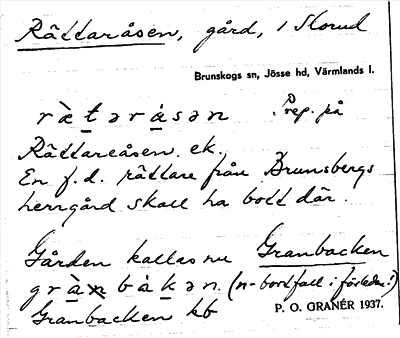 Rättaråsen, gård, i Storud
Brunskogs sn, Jösse hd, Värmlands l.
rætəråsən Prep. på
Rättareåsen. ek.
En f.d. rättare från Brunsbergs
herrgård skall ha bott där.
Gården kallas nu Granbacken
gràbàkən. (n-bortfall i förleden!)
Granbacken kb
P. O. GRANÉR 1937.